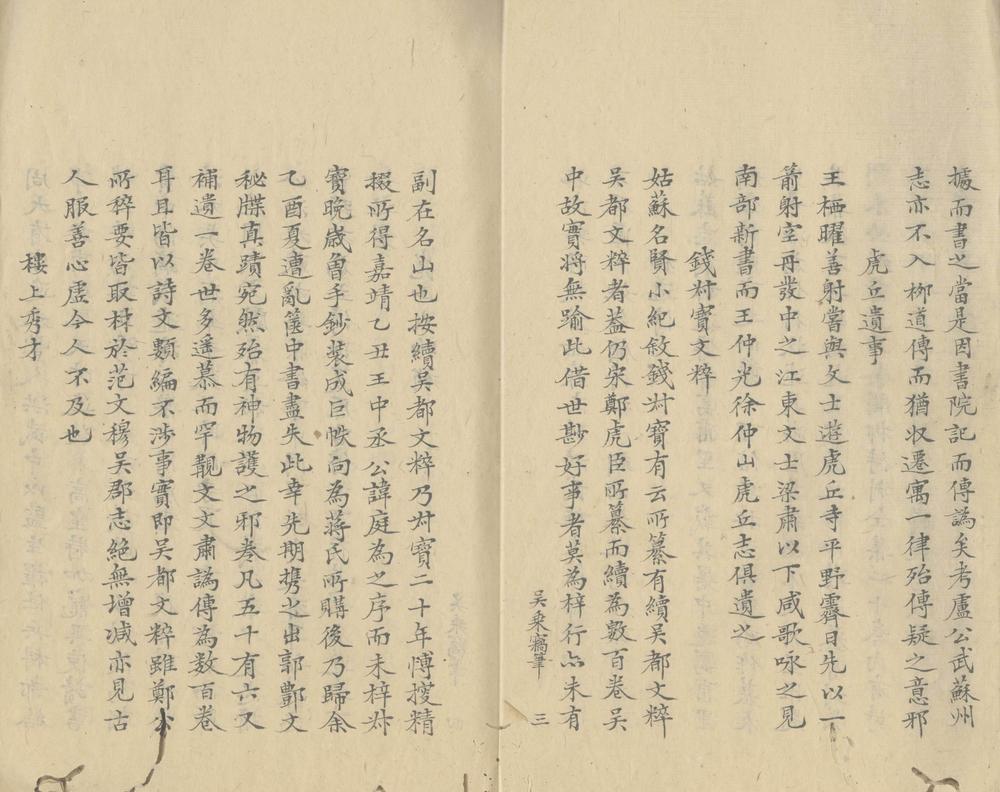 據而書之當是因書院記而傳譌矣考盧公武蘇州
志亦不入栁道傳而猶収遷寓一律殆傳疑之意邪
虎丘遺事
王栖曜善射嘗與文士遊虎丘寺平野霽日先以一
箭射空再發中之江東文士梁肅以下咸歌咏之見
南部新書而王仲光徐仲山虎丘志俱遺之
錢尗寶文粹
姑蘇名賢小紀敘錢尗寶有云所纂有續吳都文粹
吳都文粹者葢仍宋鄭虎臣所纂而續為數百卷吳
中故實將無踰此借世尠好事者莫為梓行亦未有
吳乗竊筆 三
副在名山也按續吳都文粹乃尗寶二十年愽搜精
掇所得嘉靖乙丑王中丞公諱庭為之序而未梓尗
寶晚歳魯手鈔裝成巨帙向為蔣民所購後乃歸余
乙酉夏遭亂篋中書盡失此幸先期携之出郭酆文
秘牒真蹟宛然殆有神物護之邪卷凡五十有六又
補遺一卷世多遥慕而罕覩文文肅譌傳為数百卷
耳且皆以詩文類編不涉事實即吳都文粹雖鄭公
所稡要皆取材於范文穆吳郡志絶無增减亦見古
人服善心虛今人不及也
樓上秀才